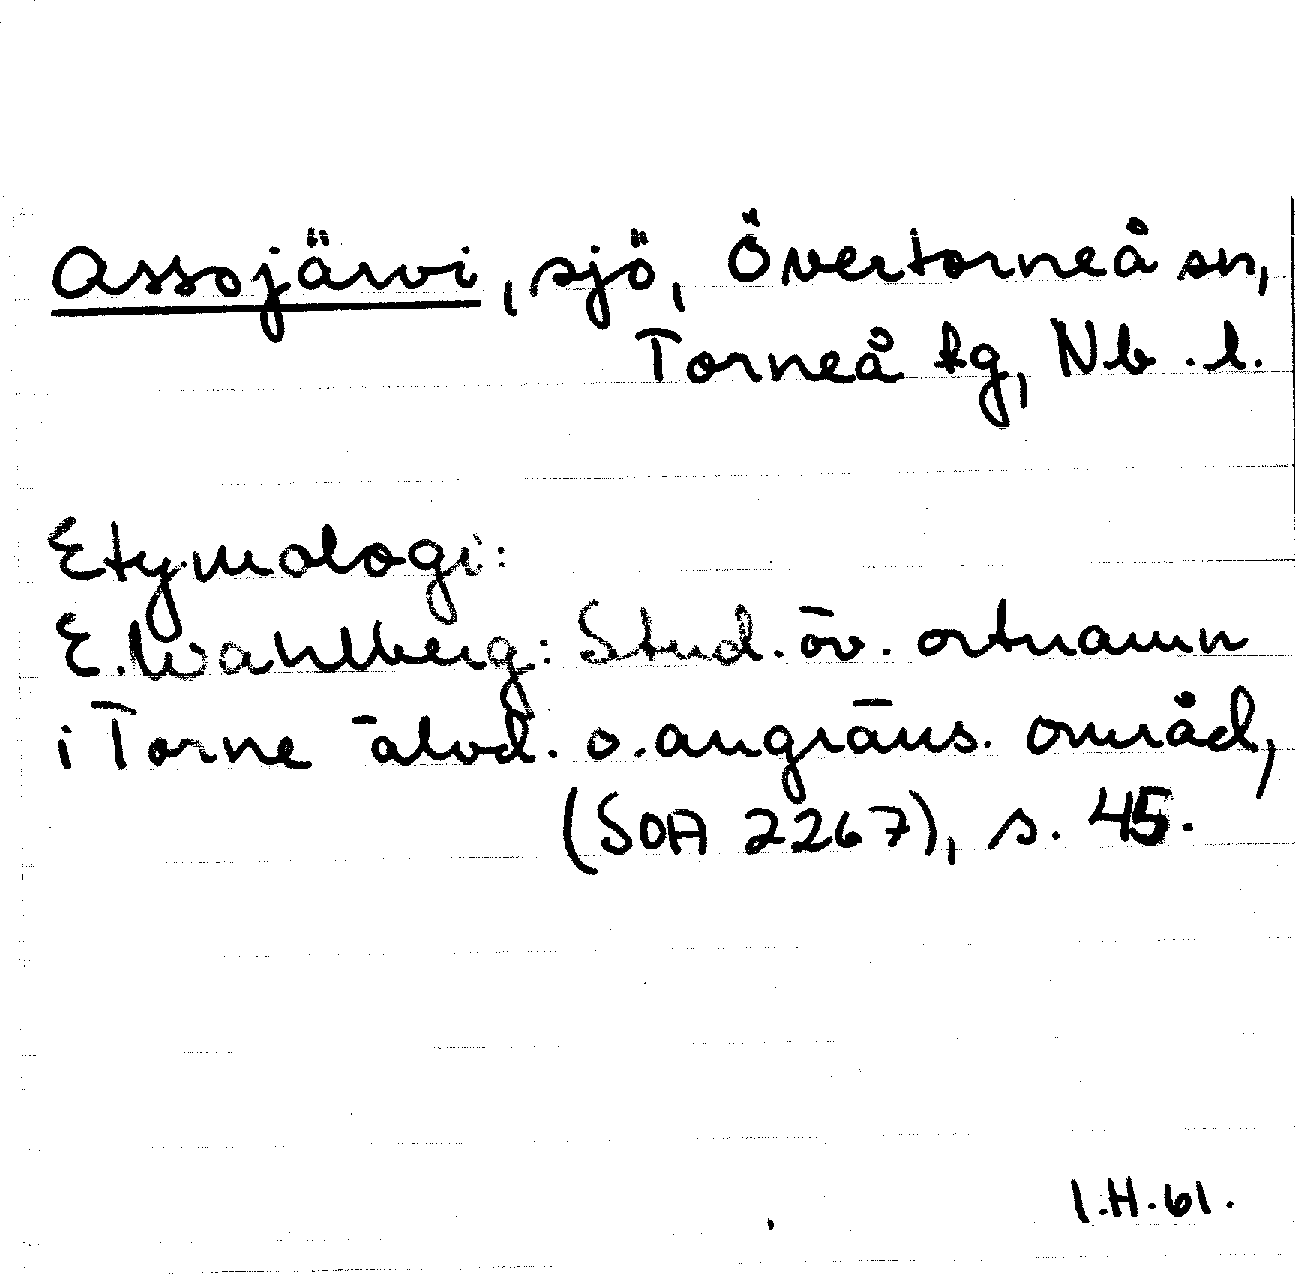 Assojärvi, sjö, Övertorneå sn,
Torneå tg, Nb. l.
Etymologi:
E. Wahlberg: Stud. öv. ortnamn
i Torne älvd. o. angräns. områd,
(SOA 2267), s. 45.
I.H. 61.